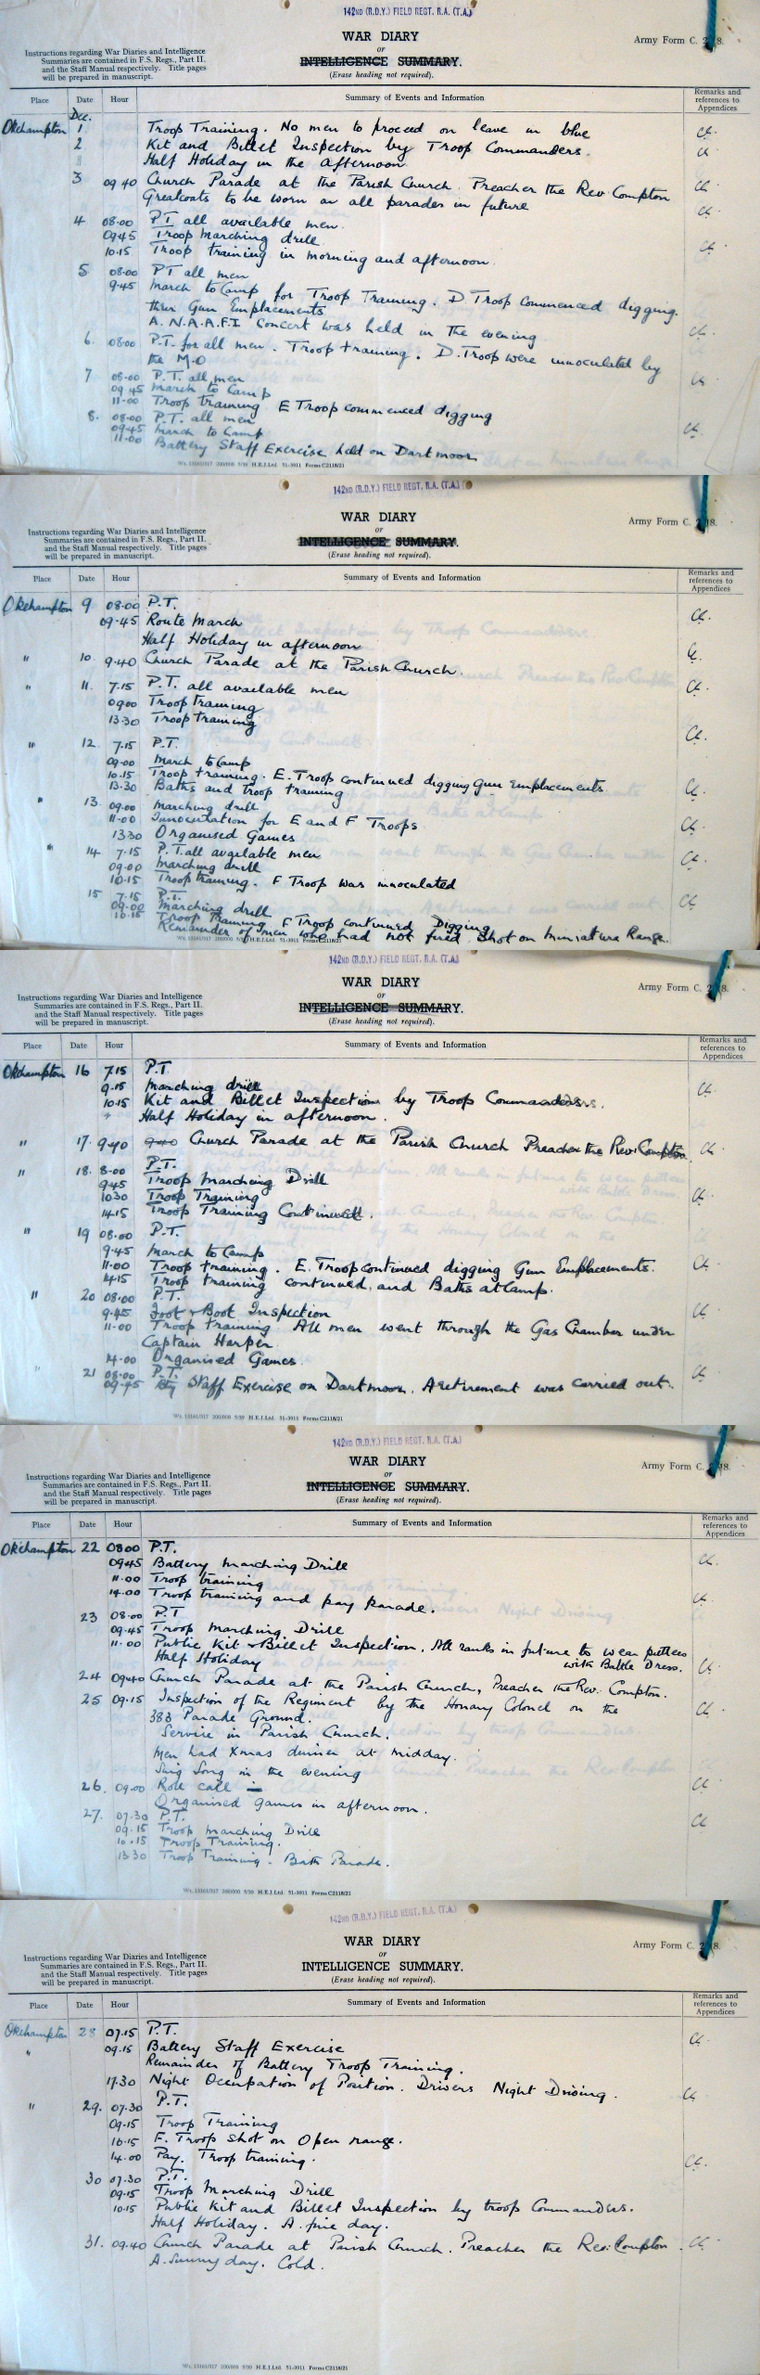 142ND (R.D.Y.) FIELD REGT. R.A. (T.A.)
WAR DIARY
or
INTELLIGENCE SUMMARY.
(Erase heading not required).
Army Form C. 2118.
Instructions regarding War Diaries and Intelligence
Summaries are contained in F.S. Regs., Part II.
and the Staff Manual respectively. Title pages
will be prepared in manuscript.
Place Date Hour Summary of Events and Information Remarks and references to Appendices
Dec.
Okehampton 1 Troop Training. No men to proceed on leave in blue
2 Kit and Billet Inspection by Troop Commanders.
Half Holiday in the afternoon
3 09 40 Church Parade at the Parish Church. Preacher the Rev Compton
Greatcoats to be worn on all parades in future
4 08.00 P.T. all available men.
0945 Troop Marching drill
10.15 Troop training in morning and afternoon.
5 08.00 PT all men
9.45 March to Camp for Troop Training. D Troop commenced digging
their Gun Emplacements
A. N.A.A.F.I Concert was held in the evening
6. 0800 P.T. for all men. Troop training. D. Troop were innoculated by
the M.O
7 08.00 P.T. all men
09.45 March to Camp
11.00 Troop training E Troop commenced digging
8. 08.00 P.T. all men
09.45 March to Camp
11.00 Battery Staff Exercise held on Dartmoor
142ND (R.D.Y.) FIELD REGT. R.A. (T.A.)
WAR DIARY
or
INTELLIGENCE SUMMARY.
(Erase heading not required).
Army Form C. 2118.
Instructions regarding War Diaries and Intelligence
Summaries are contained in F.S. Regs., Part II.
and the Staff Manual respectively. Title pages
will be prepared in manuscript.
Place Date Hour Summary of Events and Information Remarks and references to Appendices
Okehampton 9 08.00 P.T.
09.45 Route March
Half Holiday in afternoon
" 10. 9.40 Church Parade at the Parish Church.
" 11. 7.15 P.T. all available men
0900 Troop training
13.30 Troop training
" 12. 7.15 P.T.
09.00 March to Camp
10.15 Troop training. E. Troop continued digging Gun Emplacements
13.30 Baths and Troop training
" 13. 09.00 Marching drill
11.00 Innoculation for E and F Troops
1330 Organised Games
" 14 7.15 P.T. all available men
09.00 Marching drill
10.15 Troop training. F Troop was innoculated
15 7.15 P.T.
09.00 Marching drill
10.15 Troop Training F Troop continued Digging
Remainder of men who had not fired shot on Miniature Range.
142ND (R.D.Y.) FIELD REGT. R.A. (T.A.)
WAR DIARY
or
INTELLIGENCE SUMMARY.
(Erase heading not required).
Army Form C. 2118.
Instructions regarding War Diaries and Intelligence
Summaries are contained in F.S. Regs., Part II.
and the Staff Manual respectively. Title pages
will be prepared in manuscript.
Place Date Hour Summary of Events and Information Remarks and references to Appendices
Okehampton 16 7.15 P.T.
9.15 Marching drill
10.15 Kit and Billet Inspection by Troop Commanders.
" Half Holiday in afternoon.
" 17. 9.40 Church Parade at the Parish Church Preacher the Rev. Compton
" 18. 8.00 P.T.
9.45 Troop Marching Drill
1030 Troop Training
14.15 Troop Training Continued.
" 19 08.00 P.T.
9.45 March to Camp
11.00 Troop training. E. Troop continued digging Gun Emplacements.
14.15 Troop training continued, and Baths at Camp.
" 20 08.00 P.T.
9.45 Foot & Boot Inspection
11.00 Troop Training All men went through the Gas Chamber under
Captain Harper
14.00 Organised Games.
" 21 08.00 P.T.
09.45 Bty Staff Exercise on Dartmoor. A retirement was carried out.
142ND (R.D.Y.) FIELD REGT. R.A. (T.A.)
WAR DIARY
or
INTELLIGENCE SUMMARY.
(Erase heading not required).
Army Form C. 2118.
Instructions regarding War Diaries and Intelligence
Summaries are contained in F.S. Regs., Part II.
and the Staff Manual respectively. Title pages
will be prepared in manuscript.
Place Date Hour Summary of Events and Information Remarks and references to Appendices
Okehampton 22 0800 P.T.
0945 Battery Marching Drill
11.00 Troop training
14.00 Troop training and pay parade.
23 08.00 P.T
09.45 Troop Marching Drill
11.00 Public Kit & Billet Inspection. All ranks in future to wear puttees
Half Holiday with Battle Dress.
24 0940 Church Parade at the Parish Church, Preacher the Rev. Compton.
25 09.15 Inspection of the Regiment by the Honary Colonel on the
383 Parade Ground.
Service in Parish Church.
Men had Xmas dinner at midday.
Sing Song in the evening
26. 09.00 Roll call
Organised Games in afternoon.
27. 07.30 P.T.
09.15 Troop Marching Drill
10.15 Troop Training.
13.30 Troop Training. Bath Parade.
142ND (R.D.Y.) FIELD REGT. R.A. (T.A.)
WAR DIARY
or
INTELLIGENCE SUMMARY.
(Erase heading not required).
Army Form C. 2118.
Instructions regarding War Diaries and Intelligence
Summaries are contained in F.S. Regs., Part II.
and the Staff Manual respectively. Title pages
will be prepared in manuscript.
Place Date Hour Summary of Events and Information Remarks and references to Appendices
Okehampton 28 07.15 P.T.
" 09.15 Battery Staff Exercise
Remainder of Battery Troop Training.
17.30 Night Occupation of Position. Drivers Night Driving.
" 29. 07.30 P.T.
09.15 Troop Training
10.15 F. Troop shot on Open range.
14.00 Pay. Troop training.
30 07.30 P.T.
09.15 Troop Marching Drill
10.15 Public Kit and Billet Inspection by troop Commanders.
Half Holiday. A fine day.
31. 09.40 Church Parade at Parish Church. Preacher the Rev. Compton
A. Sunny day. Cold.